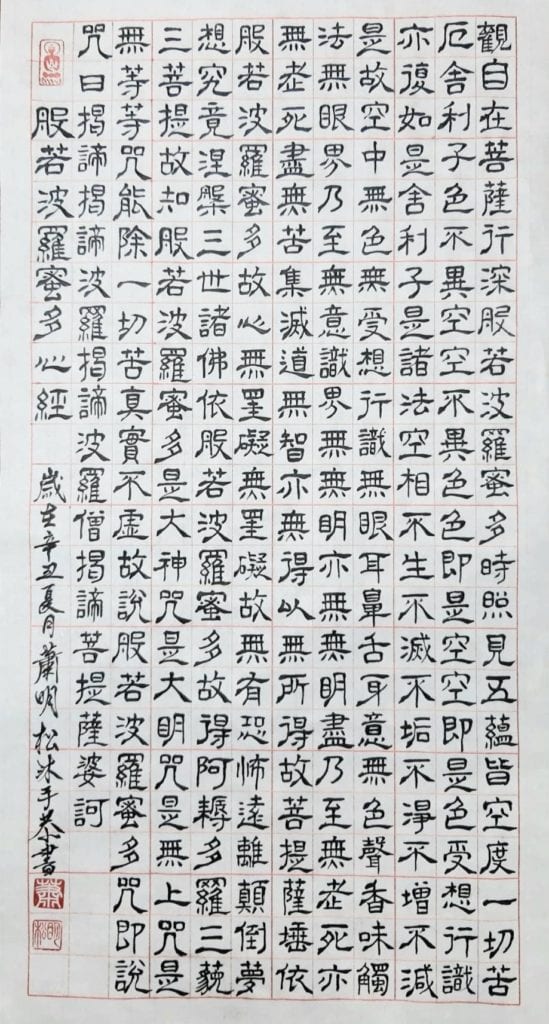 觀自在菩薩行深般若波羅蜜多時照見五蘊皆空度一切苦
厄舍利子色不異空空不異色色即是空空即是色受想行識
亦復如是舍利子是諸法空相不生不滅不垢不淨不增不減
是故空中無色無受想行識無眼耳鼻舌身意無色聲香味觸
法無眼界乃至無意識界無無明亦無無明盡乃至無老死亦
無老死盡無苦集滅道無智亦無得以無所得故菩提薩埵依
般若波羅蜜多故心無罣礙無罣礙故無有恐怖遠離顛倒夢
想究竟涅槃三世諸佛依般若波羅蜜多故得阿耨多羅三藐
三菩提故知般若波羅蜜多是大神咒是大明咒是無上咒是
無等等咒能除一切苦真實不虛故說般若波羅蜜多咒即說
咒曰揭諦揭諦波羅揭諦波羅僧揭諦菩提薩婆訶
般若波羅蜜多心經
歲在辛丑夏月蕭明松沐手恭書
蕭
明松